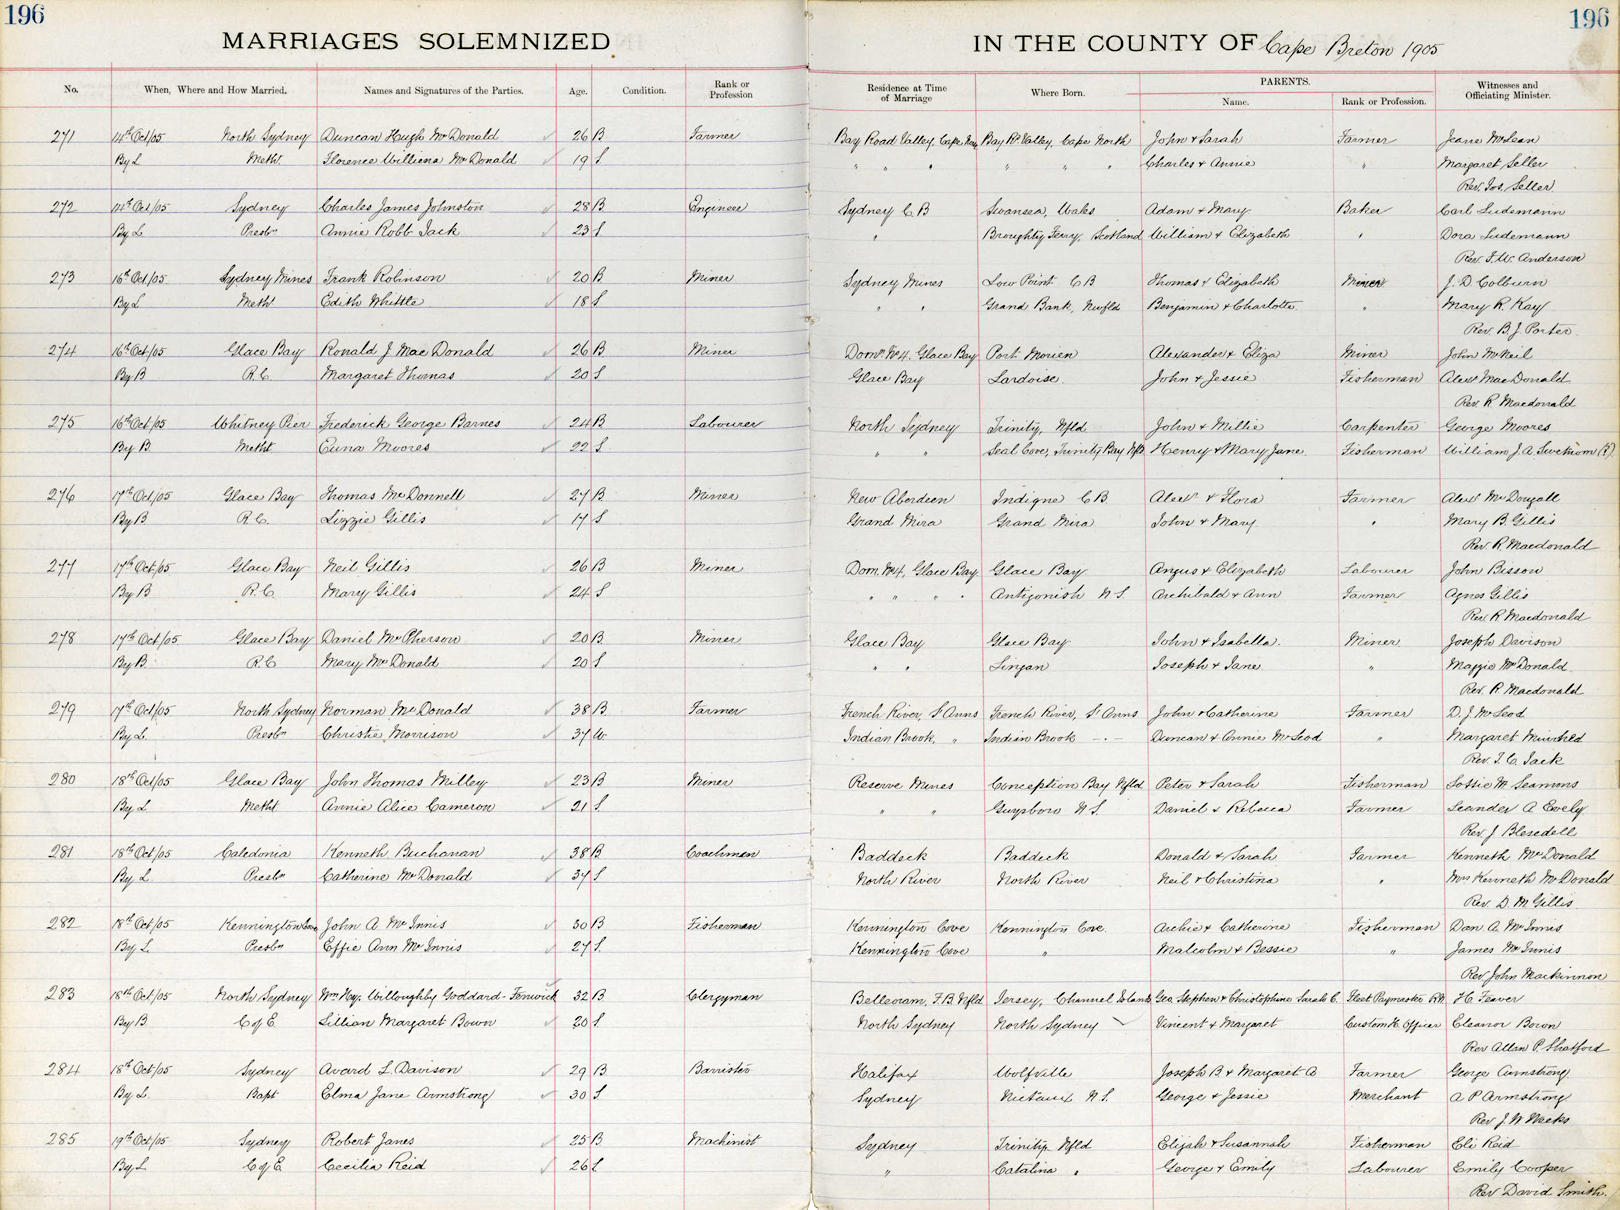 196
196
MARRIAGES SOLEMNIZED IN THE COUNTY OF Cape Breton 1905
No. When, Where and How Married. Names and Signatures of the Parties. Age. Condition. Rank or Profession Residence at Time of Marriage Where Born. PARENTS. Name. Rank or Profession. Witnesses and Officiating Minister.
271 14th Oct/05 North Sydney Duncan Hugh McDonald 26 B Farmer Bay Road Valley, Cape Bay Rd Valley, Cape North John & Sarah Farmer Jeane McLean
By L Metht Florence Williena McDonald 19 S " " " " " " Charles & Annie " Margaret Seller
Rev. Jos. Seller
272 14th Oct/05 Sydney Charles James Johnston 28 B Engineer Sydney C B Swansea, Wales Adam & Mary Baker Carl Ludemann
By L Presbn Annie Robb Jack 23 S " Broughty Ferry, Scotland William & Elizabeth " Dora Ludemann
Rev. F. W. Anderson
273 16th Oct/05 Sydney Mines Frank Robinson 20 B Miner Sydney Mines Low Point C B Thomas & Elizabeth Miner J. D Colburn
By L Metht Edith Whittle 18 S " " Grand Bank, Newfld Benjamin & Charlotte " Mary R. Kay
Rev. B. J. Porter
274 16th Oct/05 Glace Bay Ronald J MacDonald 26 B Miner Domn No 4, Glace Bay Port Morien Alexander & Eliza Miner John McNeil
By B R.C. Margaret Thomas 20 S Glace Bay Lardoise John & Jessie Fisherman Alexr MacDonald
Rev. R. Macdonald
275 16th Oct/05 Whitney Pier Frederick George Barnes 24 B Labourer North Sydney Trinity, Nfld John & Millie Carpenter George Moores
By B Metht Moores 22 S " " Seal Cove, Trinity Bay Nfld Henry & Mary Jane Fisherman William J. A. (?)
276 17th Oct/05 Glace Bay Thomas McDonnell 27 B Miner New Aberdeen Indigne C B Alexr & Flora Farmer Alexr McDougall
By B R.C. Lizzie Gillis 17 S Grand Mira Grand Mira John & Mary " Mary B. Gillis
Rev. R. Macdonald
277 17th Oct/05 Glace Bay Neil Gillis 26 B Miner Dom. No 4, Glace Bay Glace Bay Angus & Elizabeth Labourer John Bisson
By B R.C. Mary Gillis 24 S " " " " Antigonish N S. Archibald & Ann Farmer Agnes Gillis
Rev. R Macdonald
278 17th Oct/05 Glace Bay Daniel McPherson 20 B Miner Glace Bay Glace Bay John & Isabella Miner Joseph Davison
By B R.C Mary McDonald 20 S " " Lingan Joseph & Jane " Maggie McDonald
Rev. R. Macdonald
279 17th Oct/05 North Sydney Norman McDonald 38 B Farmer French River, St Anns French River, St Anns John & Catherine Farmer D. J. McLeod
By L. Presbn Christie Morrison 37 W Indian Brook, " Indian Brook - " - Duncan & Annie McLeod " Margaret Muirhead
Rev. T. C. Jack
280 18th Oct/05 Glace Bay John Thomas Milley 23 B Miner Reserve Mines Conception Bay Nfld Peter & Sarah Fisherman Lottie M Seamns
By L Metht Annie Alice Cameron 21 S. " " Guysboro N S. Daniel & Rebecca Farmer Leander A Evely
Rev. J Blesedell
281 18th Oct/05 Caledonia Kenneth Buchanan 38 B Coachman Baddeck Baddeck Donald & Sarah Farmer Kenneth McDonald
By L. Presbn Catherine McDonald 37 S North River North River Neil & Christina " Mrs Kenneth McDonald
Rev. D. M Gillis
282 18th Oct/05 Kennington Cove John A McInnis 30 B Fisherman Kennington Cove Kennington Cove Archie & Catherine Fisherman Dan. A. McInnis
By L. Presbn Effie Ann McInnis 27 S. Kennington Cove " Malcolm & Bessie " James McInnis
Rev John Mackinnon
283 18th Oct/05 North Sydney Wm Hay. Willoughby Goddard-Fenwick 32 B Clergyman Belleoram, F.B. Nfld Jersey, Channel Islands Geo Stephen & Christophine Sarah C. Fleet Paymaster R.N. H. Feaver
By B C of E. Lillian Margaret Bown 20 S. North Sydney North Sydney Vincent & Margaret Custom H. Officer Eleanor Bown
Rev Allan P. Shatford
284 18th Oct/05 Sydney Avard L. Davison 29 B Barrister Halifax Wolfville Joseph B & Margaret A Farmer George Armstrong
By L. Bapt Elma Jane Armstrong 30 S Sydney Nictaux N S. George & Jessie Merchant A P Armstrong
Rev J. W Weeks
285 19th Oct/05 Sydney Robert Janes 25 B Machinist Sydney Trinity, Nfld Elijah & Susannah Fisherman Eli Reid
By L C of E Cecilia Reid 26 S " Catalina " George & Emily Labourer Emily Cooper
Rev David Smith.